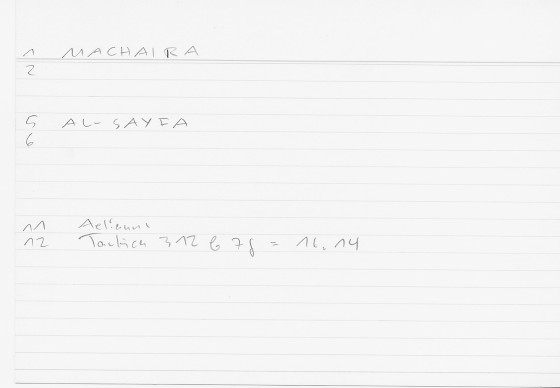 1 MACHAIRA
2
5 AL-SAYFA
6
11 Aelianus
12 Tactica 312 b 7f = 16, 14